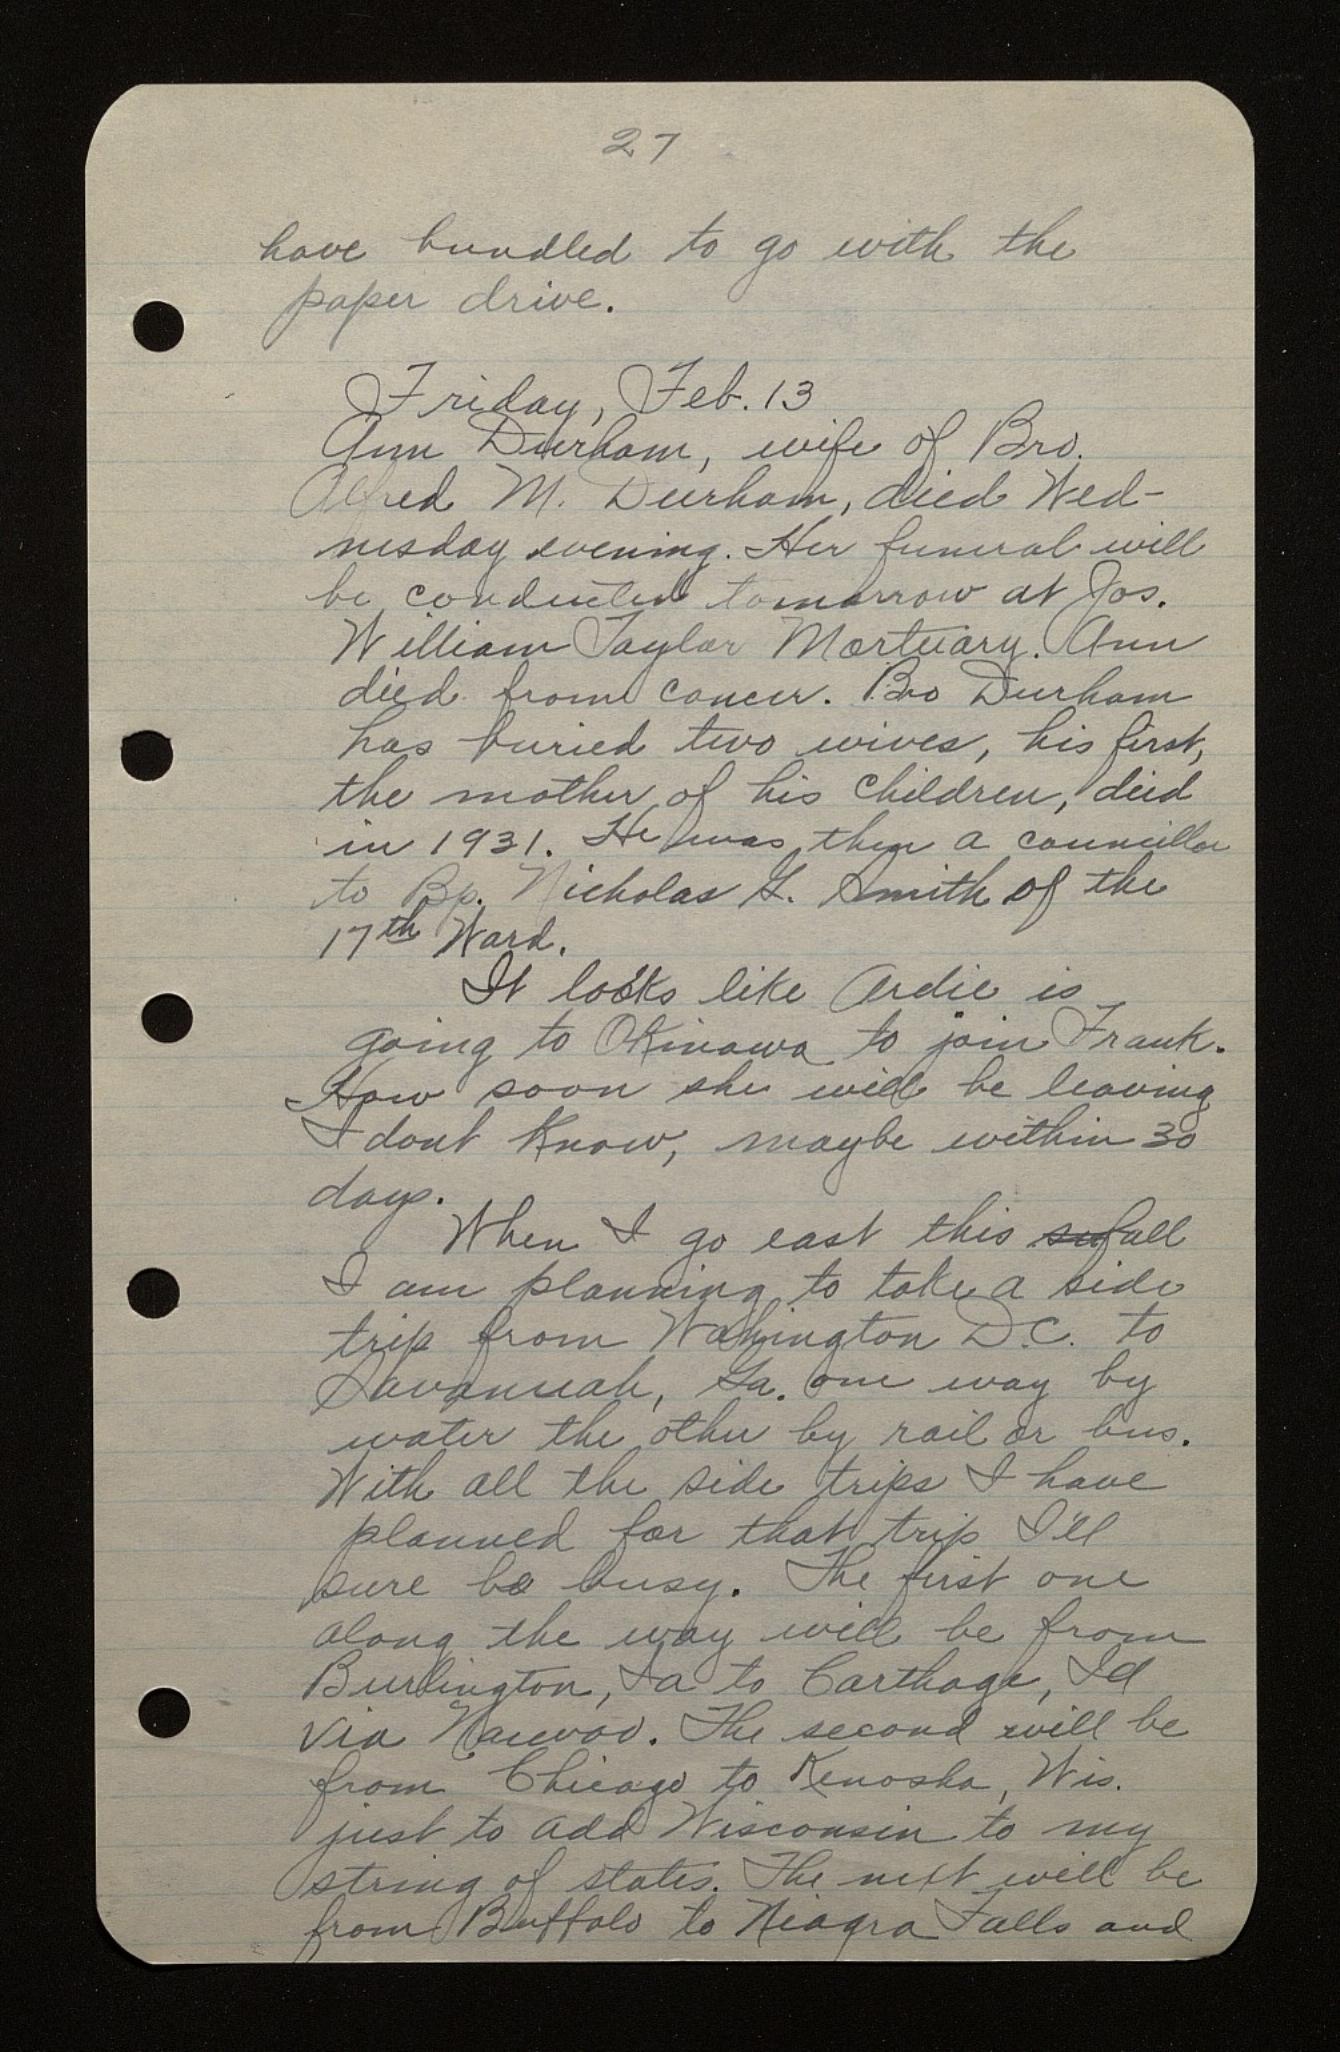 27
have bundled to go with the
paper drive.
Friday, Feb. 13
Ann Durham, wife of Bro.
Alfred M. Durham, died Wed-
nesday evening. Her funeral will
be conducted tomorrow at Jos.
William Taylor Mortuary. Ann
died from cancer. Bro Durham
has buried two wives, his first,
the mother of his children, died
in 1931. He was then a councillor
to Bp. Nicholas G. Smith of the
17th Ward.
It looks like Ardie is
going to Okinawa to join Frank.
How soon she will be leaving
I dont know, maybe within 30
days.
When I go east this su fall
I am planning to take a side
trip from Wahington D.C. to
Savannah, Ga. one way by
water the other by rail or bus.
With all the side trips I have
planned for that trip I'll
sure be busy. The first one
along the way will be from
Burlington, Ia to Carthage, Ill
via Nauvoo. The second will be
from Chicago to Kenosha, Wis.
just to add Wisconsin to my
string of states. The next will be
from Buffalo to Niagra Falls and